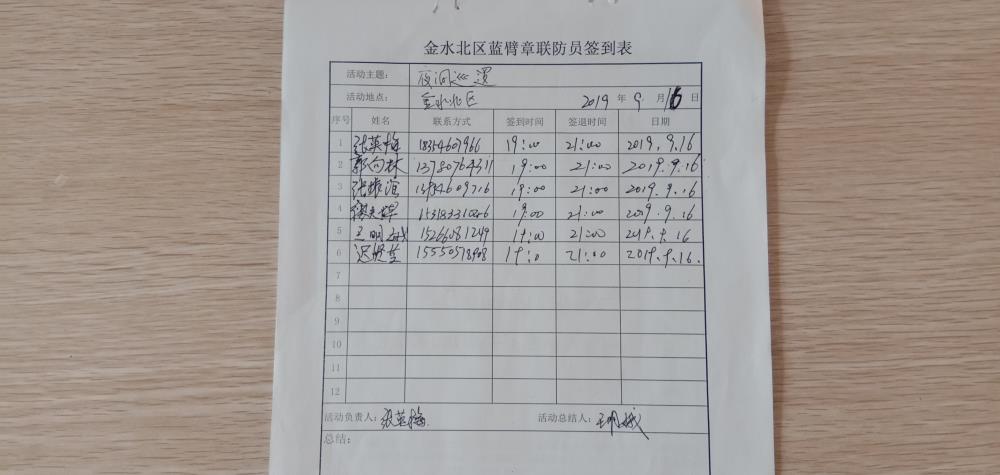 金水北区蓝臂章联防员签到表
活动主题： 夜间巡逻
活动地点： 金水北区 2019 年 9 月 16 日
序号 姓名 联系方式 签到时间 签退时间 日期
1 张英梅 18354607966 19:00 21:00 2019.9.16
2 郭向林 13780764311 19:00 21:00 2019.9.16
3 张振谊 19:00 21:00 2019.9.16
4 19:00 21:00 2019.9.16
5 王明娥 15266081249 19:00 21:00 2019.9.16
6 19:0 21:00 2019.9.16.
7
8
9
10
11
12
活动负责人： 张英梅 活动总结人： 王明娥
总结：